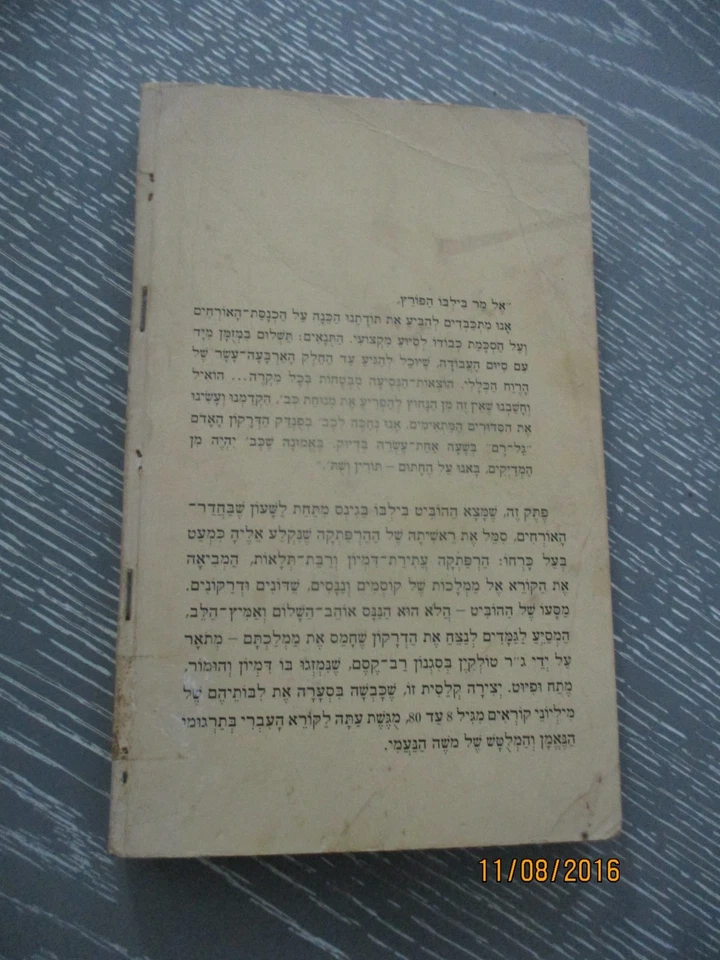 ״אֶל מַר בִּילְבּוֹ הַפּוֹרֵץ,
אָנוּ מִתְכַּבְּדִים לְהַבִּיעַ אֶת תּוֹדָתֵנוּ הַכֵּנָה עַל הַכְנָסַת־הָאוֹרְחִים
וְעַל הַסְכָּמַת כְּבוֹדוֹ לְסִיּוּעַ מִקְצוֹעִי. הַתְּנָאִים: תַּשְׁלוּם בִּמְזֻמָּן מִיָּד
עִם סִיּוּם הָעֲבוֹדָה, שֶׁיּוּכַל לְהַגִּיעַ עַד הַחֵלֶק הָאַרְבָּעָה־עָשָׂר שֶׁל
הָרֶוַח הַכְּלָלִי. הוֹצָאוֹת־הַנְּסִיעָה מֻבְטָחוֹת בְּכָל מִקְרֶה... הוֹאִיל
וְחָשַׁבְנוּ שֶׁאֵין זֶה מִן הַנָּחוּץ לְהַפְרִיעַ אֶת מְנוּחַת כְּב׳, הִקְדַּמְנוּ וְעָשִׂינוּ
אֶת הַסִּדּוּרִים הַמַּתְאִימִים. אָנוּ נְחַכֶּה לִכְב׳ בְּפֻנְדַּק הַדְּרָקוֹן הָאָדֹם
״גַּל־רָם״ בְּשָׁעָה אַחַת־עֶשְׂרֵה בְּדִיּוּק. בֶּאֱמוּנָה שֶׁכְּב׳ יִהְיֶה מִן
הַמְדַיְּקִים, בָּאנוּ עַל הֶחָתוּם – תּוֹרִין וְשֻׁתּ׳.״
פֶּתֶק זֶה, שֶׁמָּצָא הַהוֹבִּיט בִּילְבּוֹ בֶּגִינְס מִתַּחַת לַשָּׁעוֹן שֶׁבַּחֲדַר־
הָאוֹרְחִים, סִמֵּל אֶת רֵאשִׁיתָהּ שֶׁל הַהַרְפַּתְקָה שֶׁנִּקְלַע אֵלֶיהָ כִּמְעַט
בְּעַל כָּרְחוֹ: הַרְפַּתְקָה עֲתִירַת־דִּמְיוֹן וְרַבַּת־תְּלָאוֹת, הַמְּבִיאָה
אֶת הַקּוֹרֵא אֶל מַמְלָכוֹת שֶׁל קוֹסְמִים וְנַנָּסִים, שֵׁדוֹנִים וּדְרָקוֹנִים.
מַסָּעוֹ שֶׁל הַהוֹבִּיט – הֲלֹא הוּא הַנַּנָּס אוֹהֵב־הַשָּׁלוֹם וְאַמִּיץ־הַלֵּב,
הַמְסַיֵּעַ לַגַּמָּדִים לְנַצֵּחַ אֶת הַדְּרָקוֹן שֶׁחָמַס אֶת מַמְלַכְתָּם – מְתֹאָר
עַל יְדֵי ג״ר טוֹלְקִין בְּסִגְנוֹן רַב־קֶסֶם, שֶׁנִּמְזְגוּ בּוֹ דִּמְיוֹן וְהוּמוֹר,
מֶתַח וּפִיּוּט. יְצִירָה קְלַסִּית זוֹ, שֶׁכָּבְשָׁה בִּסְעָרָה אֶת לִבּוֹתֵיהֶם שֶׁל
מִילְיוֹנֵי קוֹרְאִים מִגִּיל 8 עַד 80, מֻגֶּשֶׁת עַתָּה לַקּוֹרֵא הָעִבְרִי בְּתַרְגּוּמוֹ
הַנֶּאֱמָן וְהַמְלֻטָּשׁ שֶׁל מֹשֶׁה הַנַּעֲמִי.
11/08/2016